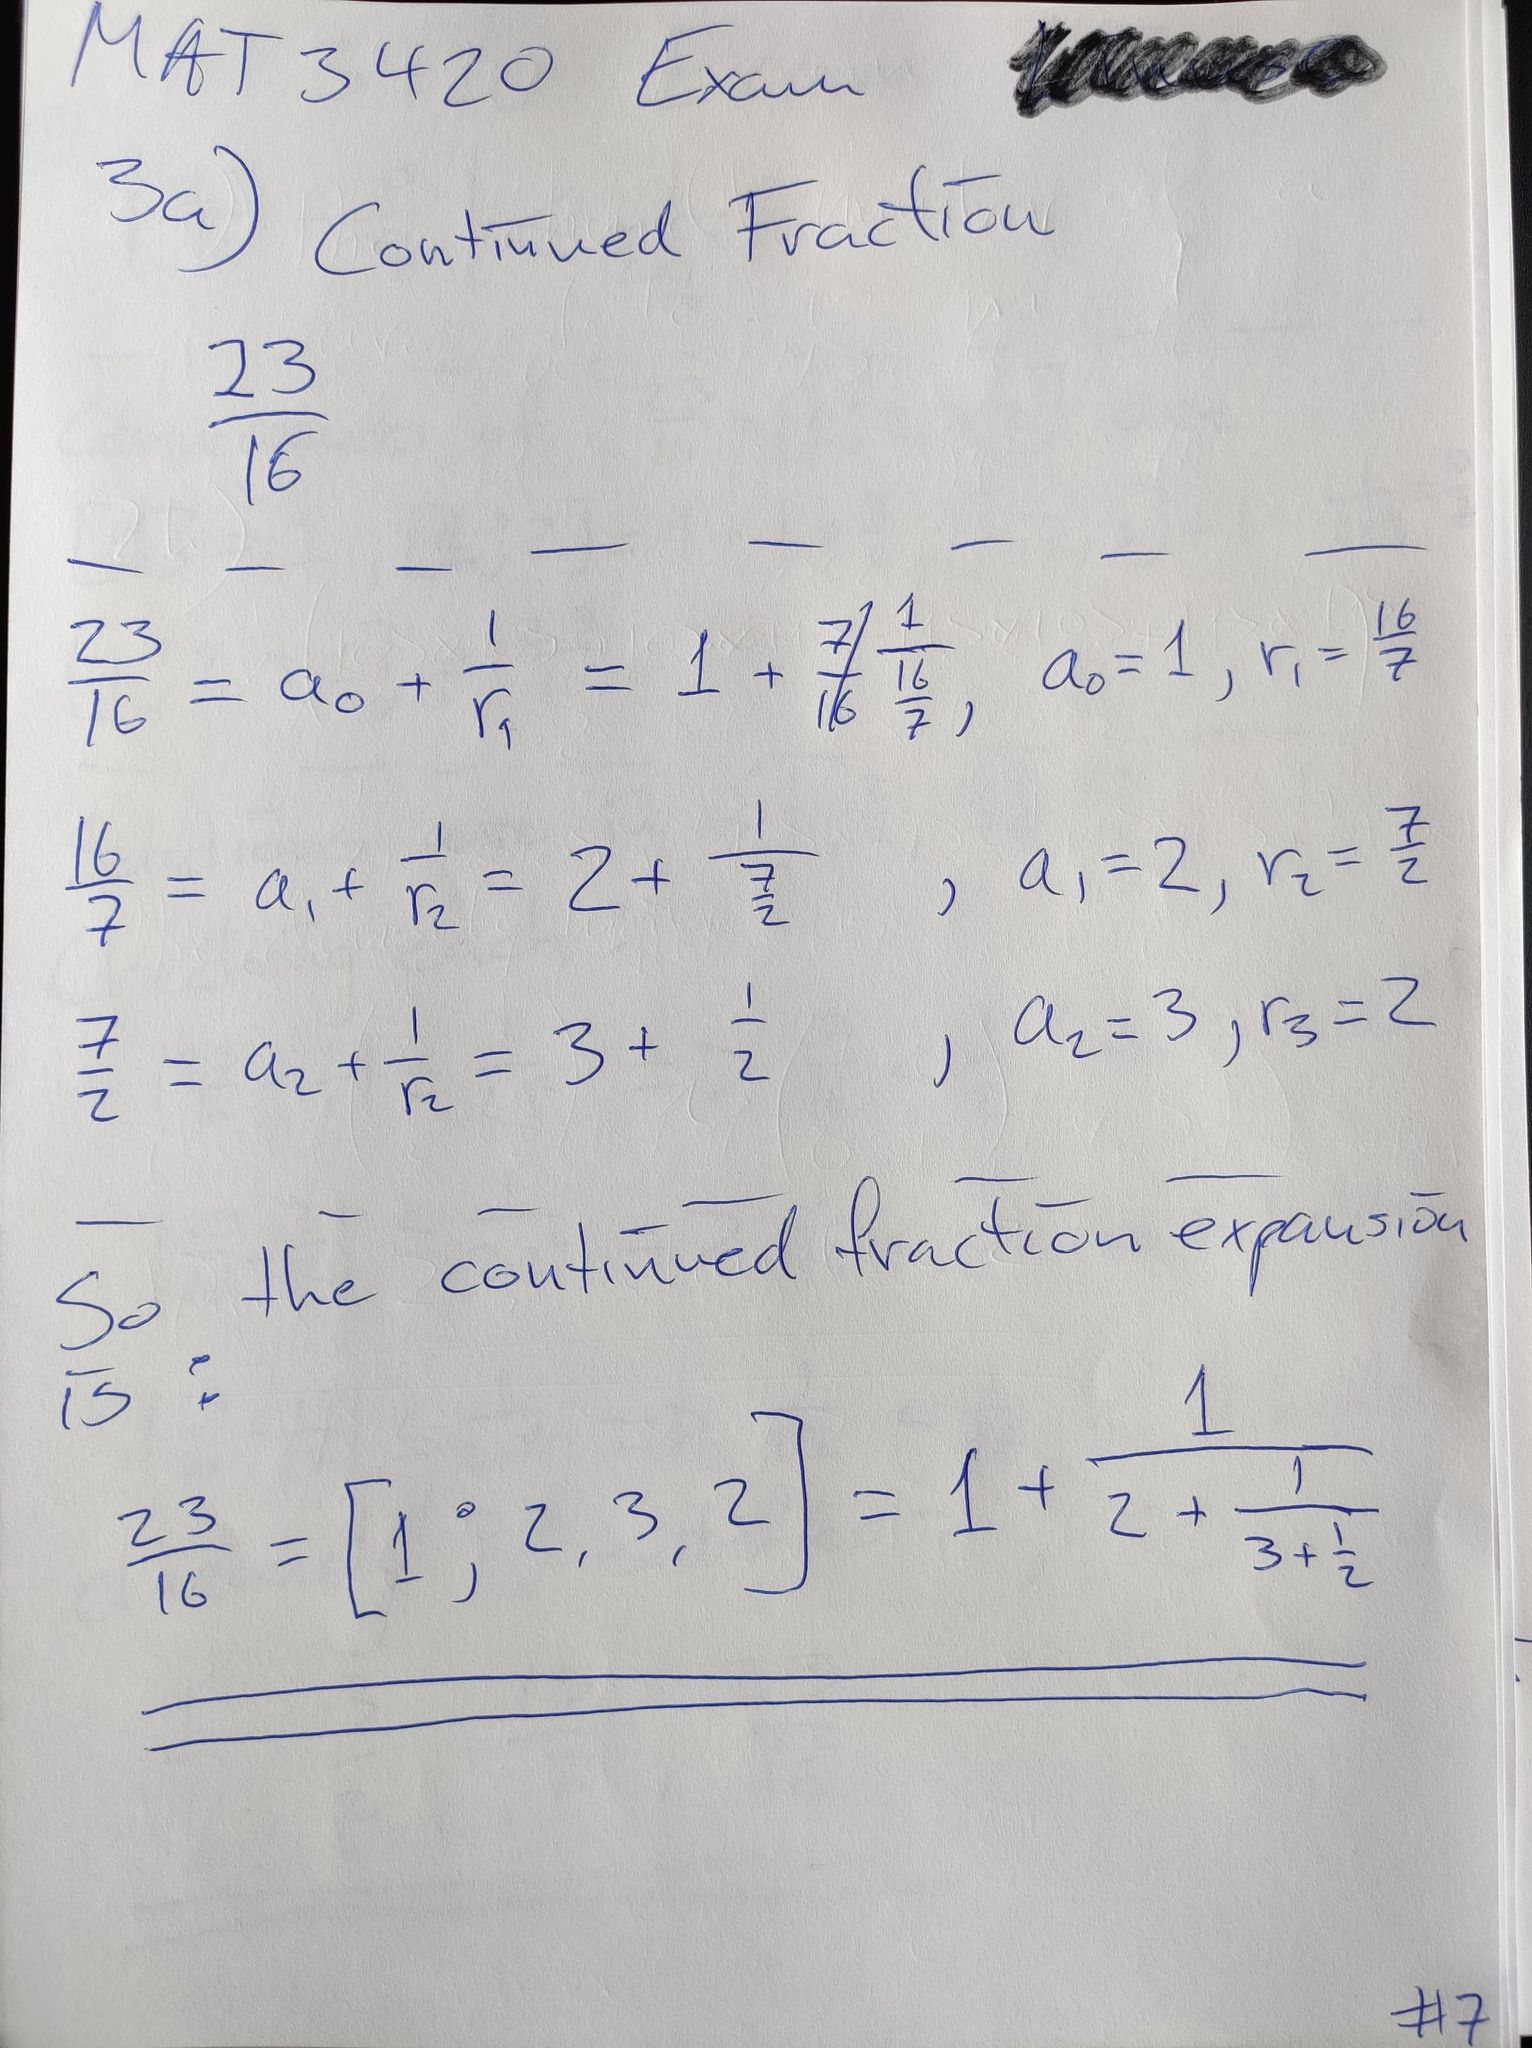 MAT 3420 Exam
3a) Continued Fraction
23/16
23/16 = a₀ + 1/r₁ = 1 + 7/16 1/(16/7), a₀ = 1, r₁ = 16/7
16/7 = a₁ + 1/r₂ = 2 + 1/(7/2), a₁ = 2, r₂ = 7/2
7/2 = a₂ + 1/r₂ = 3 + 1/2, a₂ = 3, r₃ = 2
So the continued fraction expansion
is:
23/16 = [1; 2, 3, 2] = 1 + 1/(2 + 1/(3 + 1/2))
#7